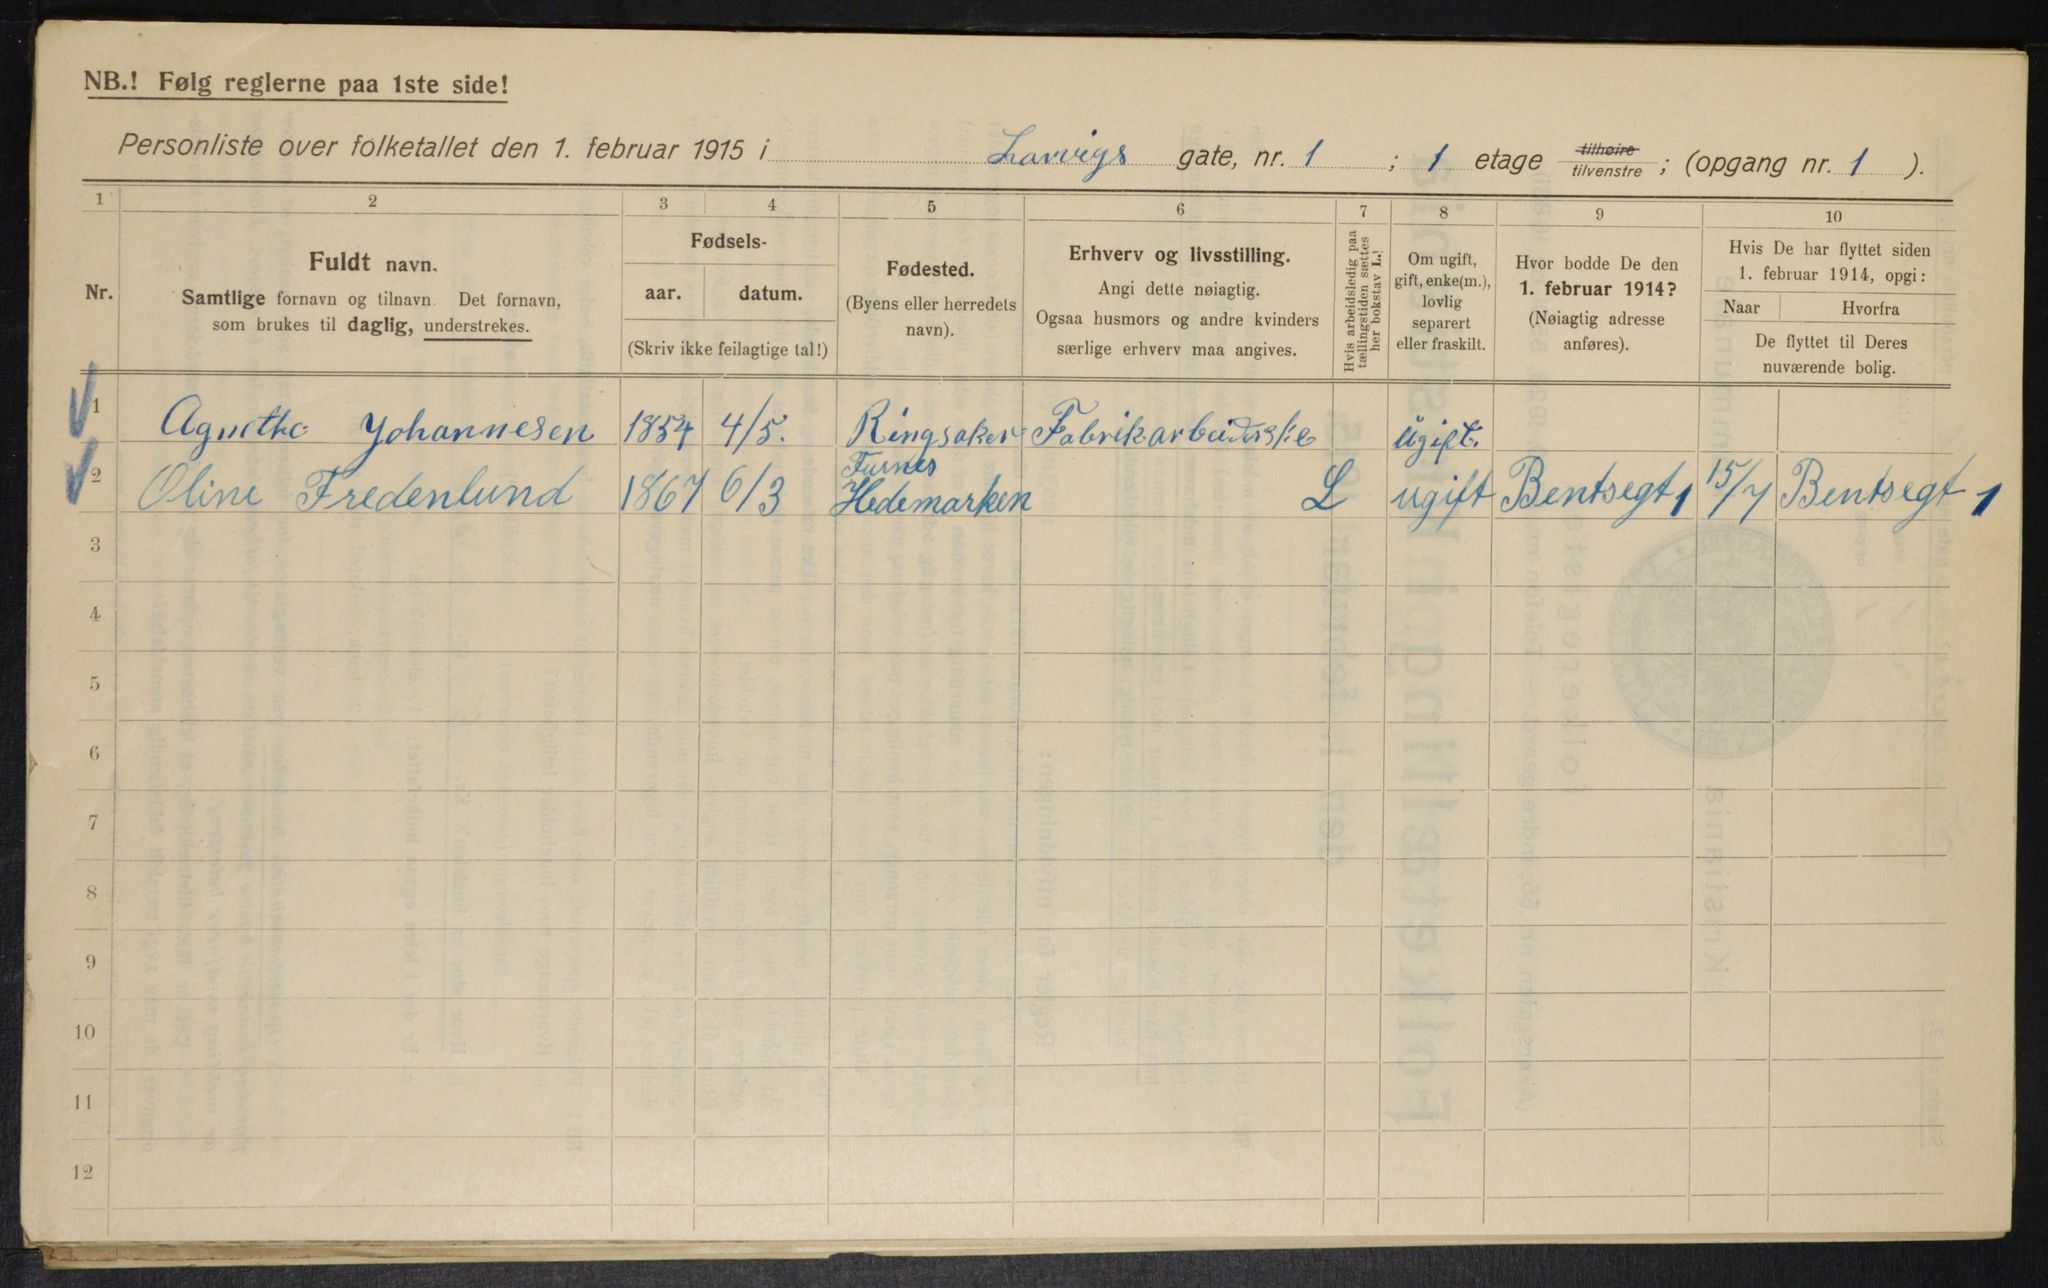 NB.! Følg reglerne paa 1ste side!
Personliste over folketallet den 1. februar 1915 i Larvigs gate, nr. 1 ; 1 etage tilhøire tilvenstre ; (opgang nr. 1 ).
1 2 3 4 5 6 7 8 9 10
Nr.
Fuldt navn.
Samtlige fornavn og tilnavn. Det fornavn,
som brukes til daglig, understrekes.
Fødsels-
aar. datum.
(Skriv ikke feilagtige tal!)
Fødested.
(Byens eller herredets
navn).
Erhverv og livsstilling.
Angi dette nøiagtig.
Ogsaa husmors og andre kvinders
særlige erhverv maa angives.
Hvis arbeidsledig paa
tællingstiden sættes
her bokstav L.!
Om ugift,
gift, enke(m.),
lovlig
separert
eller fraskilt.
Hvor bodde De den
1. februar 1914?
(Nøiagtig adresse
anføres).
Hvis De har flyttet siden
1. februar 1914, opgi:
Naar Hvorfra
De flyttet til Deres
nuværende bolig.
1 Agnethe Johannesen 1854 4/5. Ringsaker Fabrikarbeiderske ugift.
2 Oline Fredenlund 1867 6/3 Furnes
Hedemarken L ugift Bentsegt 1 15/7 Bentsegt 1
3
4
5
6
7
8
9
10
11
12